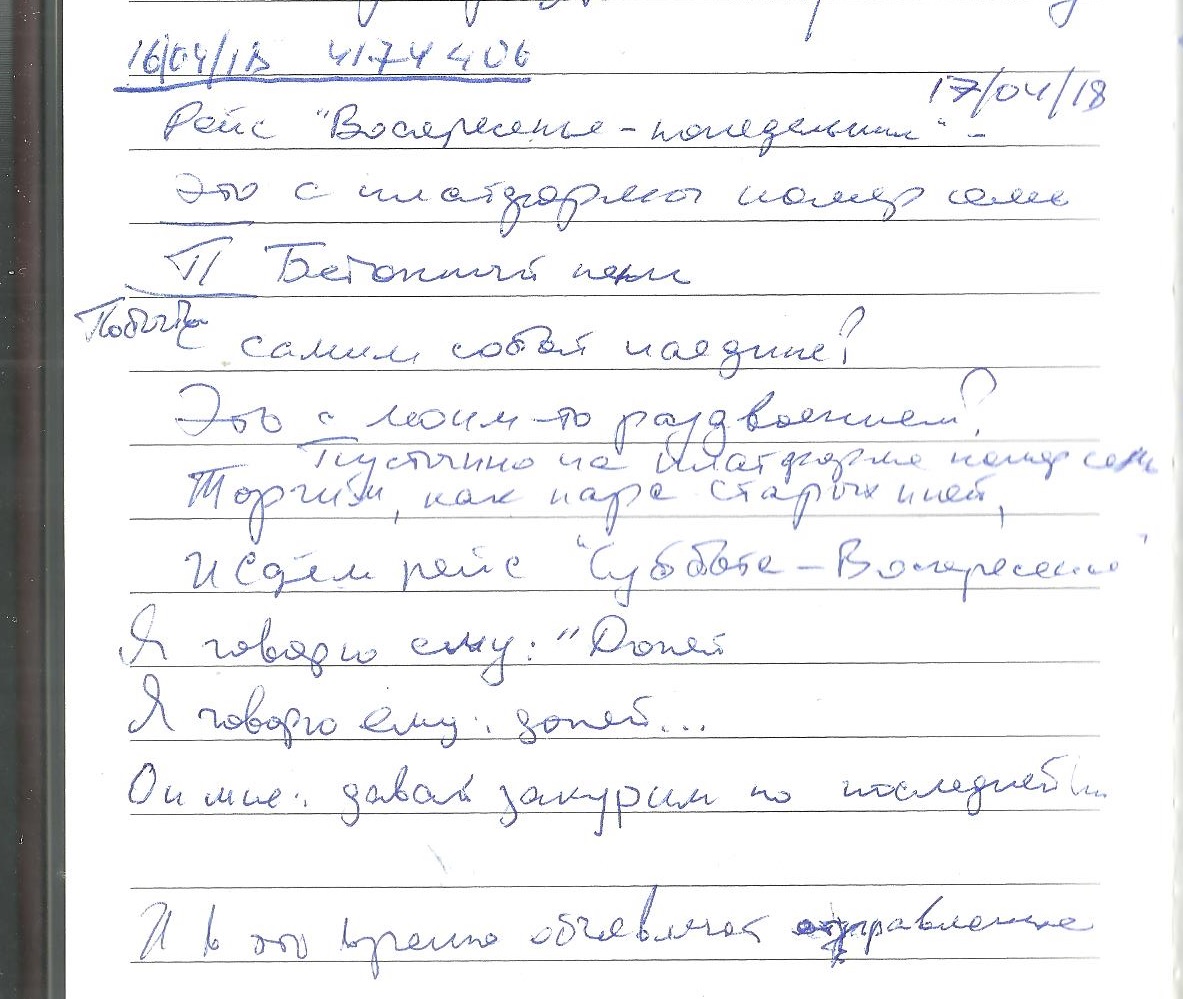 16/04/18 4174406
17/04/18
Рейс "Воскресенье - понедельник" -
Это с платформы номер семь
П Бетонный
Побыть
самим собой наедине?
Это с моим-то раздвоением?
Пустынно на платформе номер семь
Торчим, как пара старых пней,
И ждём рейс "Суббота - Воскресенье"
Я говорю ему: "Допей
Я говорю ему: допей...
Он мне: давай закурим по последней
И в это время объявляют отправление